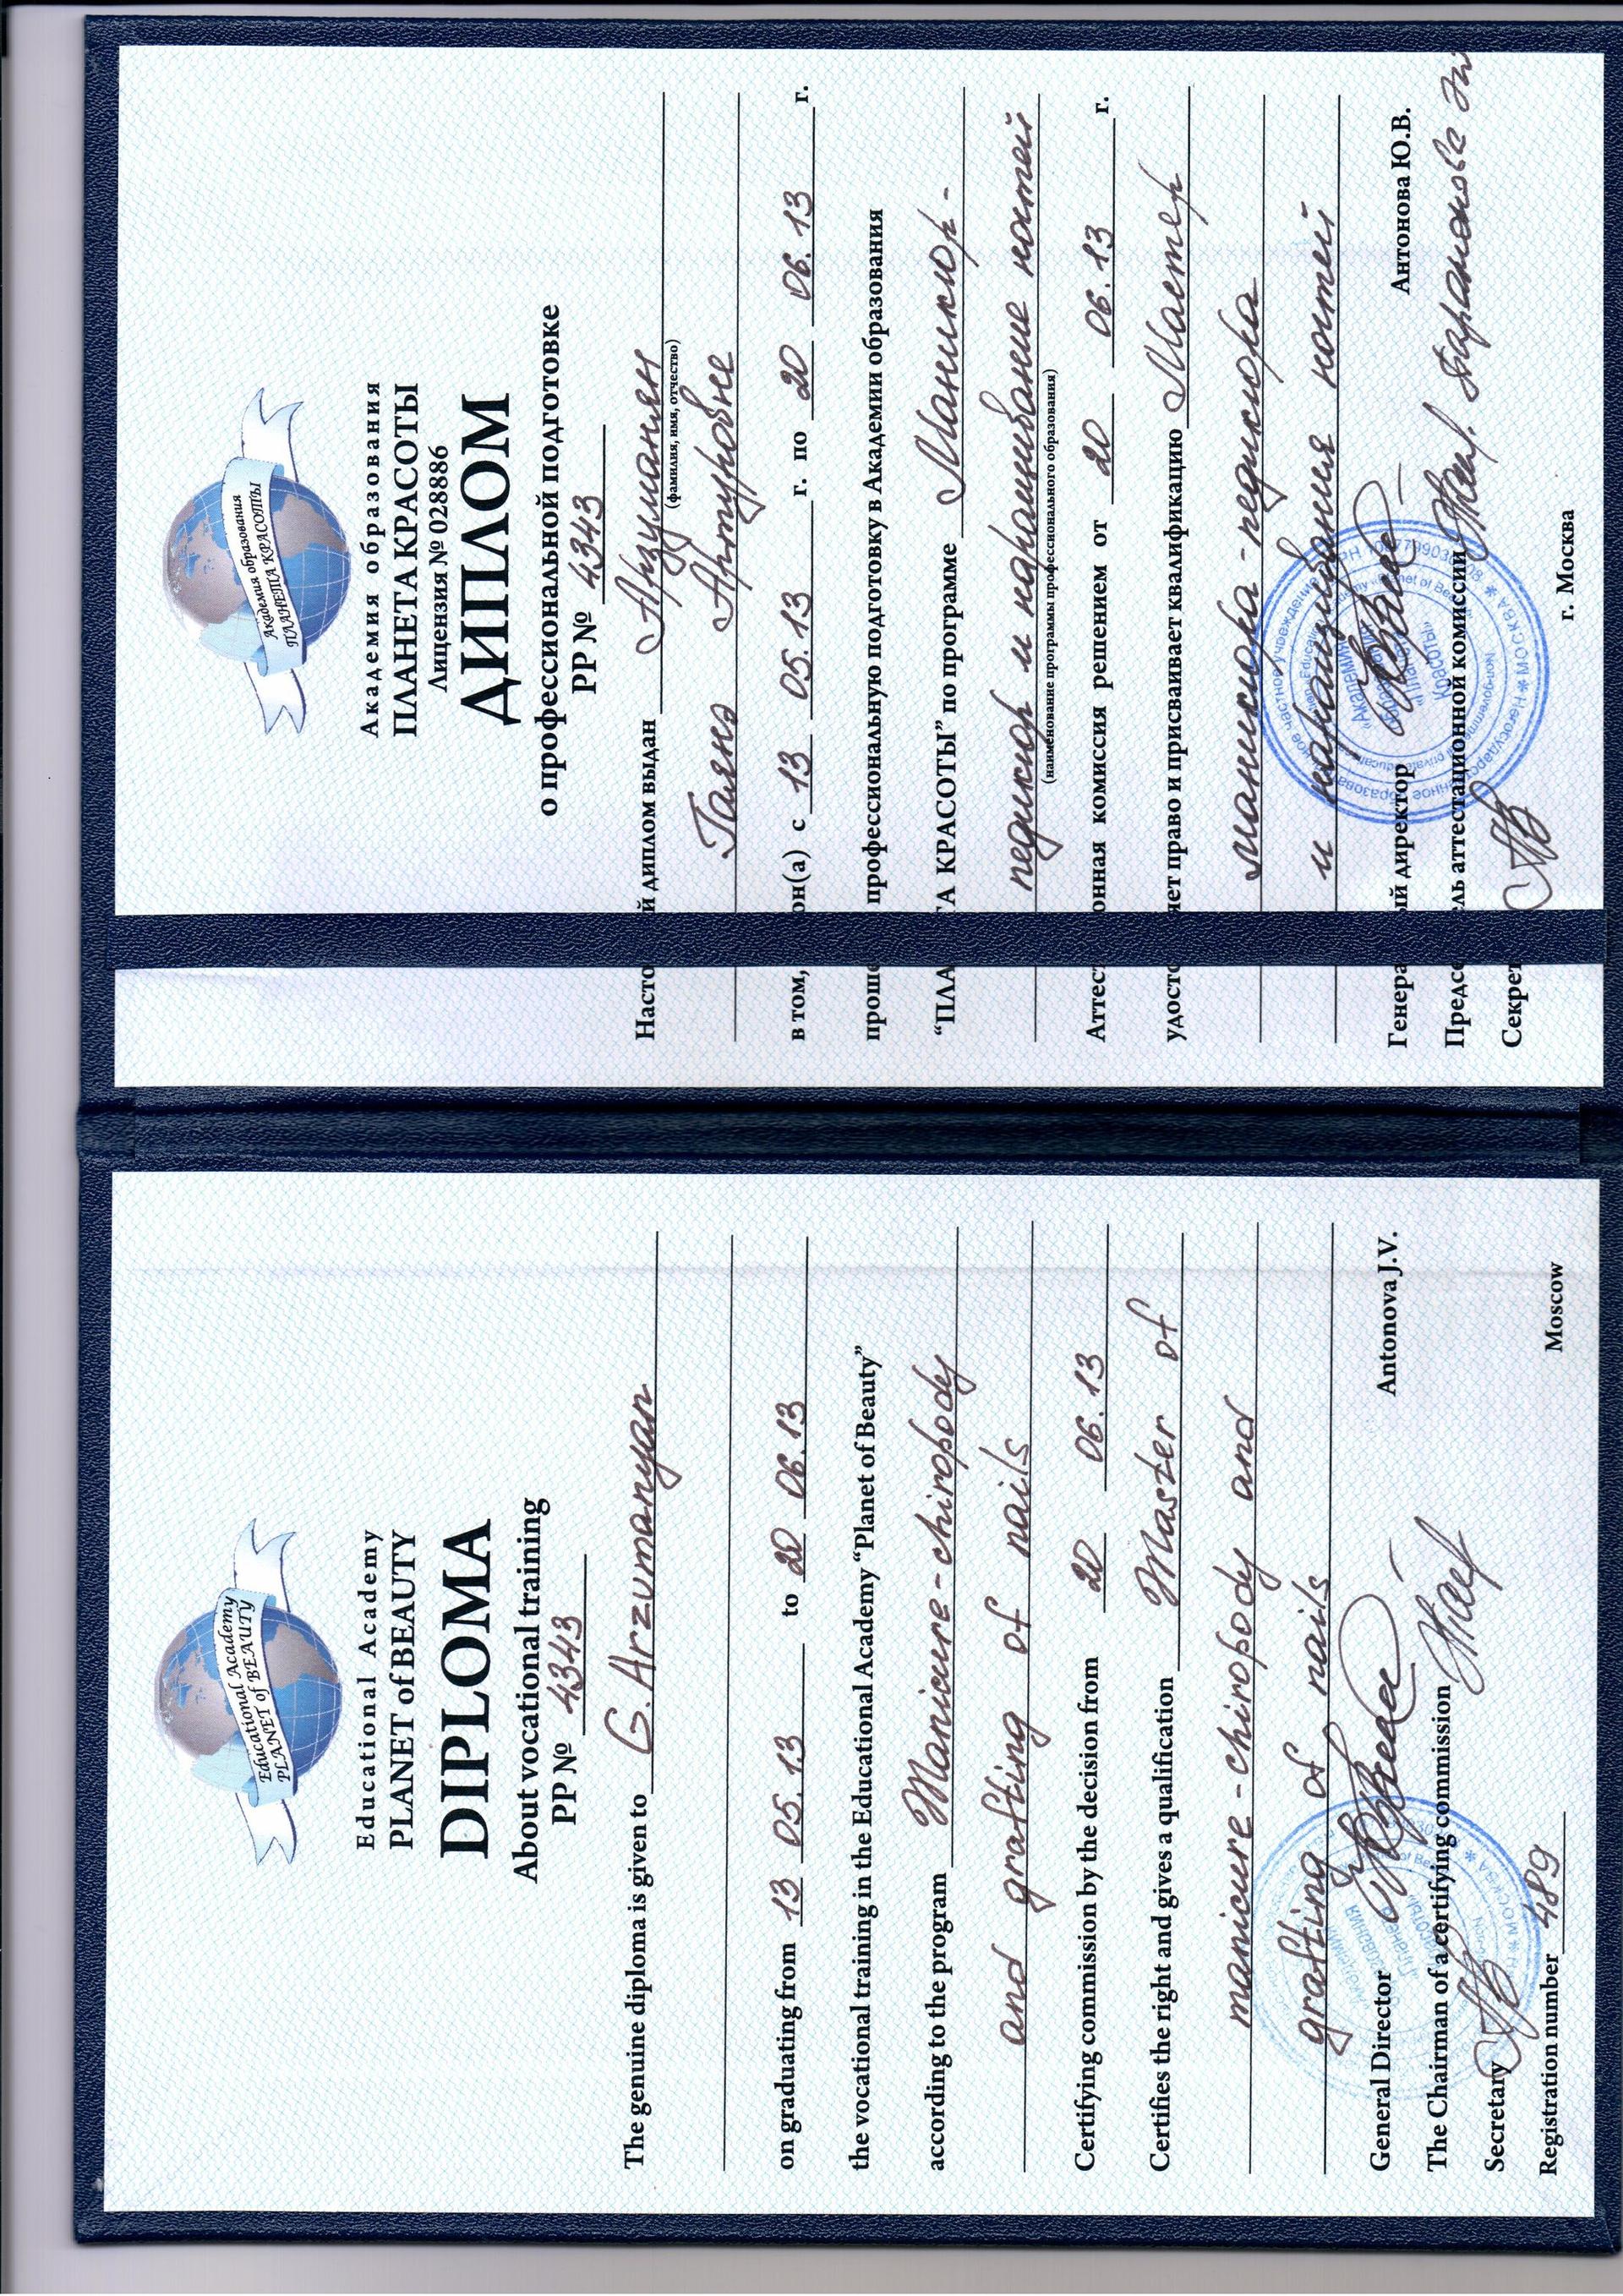 Educational Academy
PLANET of BEAUTY
Educational Academy
PLANET of BEAUTY
DIPLOMA
About vocational training
PP № 4343
The genuine diploma is given to G. Arzumanyan
on graduating from 13 05.13 to 20 06.13
the vocational training in the Educational Academy “Planet of Beauty”
according to the program Manicure-chiropody
and grafting of nails
Certifying commission by the decision from 20 06.13
Certifies the right and gives a qualification Master of
manicure-chiropody and
grafting of nails
General Director Antonova J.V.
The Chairman of a certifying commission
Secretary
Registration number 489 Moscow
Академия образования
ПЛАНЕТА КРАСОТЫ
Академия образования
ПЛАНЕТА КРАСОТЫ
Лицензия № 028886
ДИПЛОМ
о профессиональной подготовке
РР № 4343
Насто й диплом выдан Арзуманян
(фамилия, имя, отчество)
Гаяне Артуровне
в том, он(а) с 13 05.13 г. по 20 06.13 г.
прош профессиональную подготовку в Академии образования
“ПЛА ТА КРАСОТЫ” по программе Маникюр-
педикюр и наращивание ногтей
(наименование программы профессионального образования)
Аттес онная комиссия решением от 20 06.13 г.
удосто яет право и присваивает квалификацию Мастер
маникюра-педикюра
и наращивания ногтей
Генера ый директор Антонова Ю.В.
Предсе ль аттестационной комиссии
Секрет
г. Москва